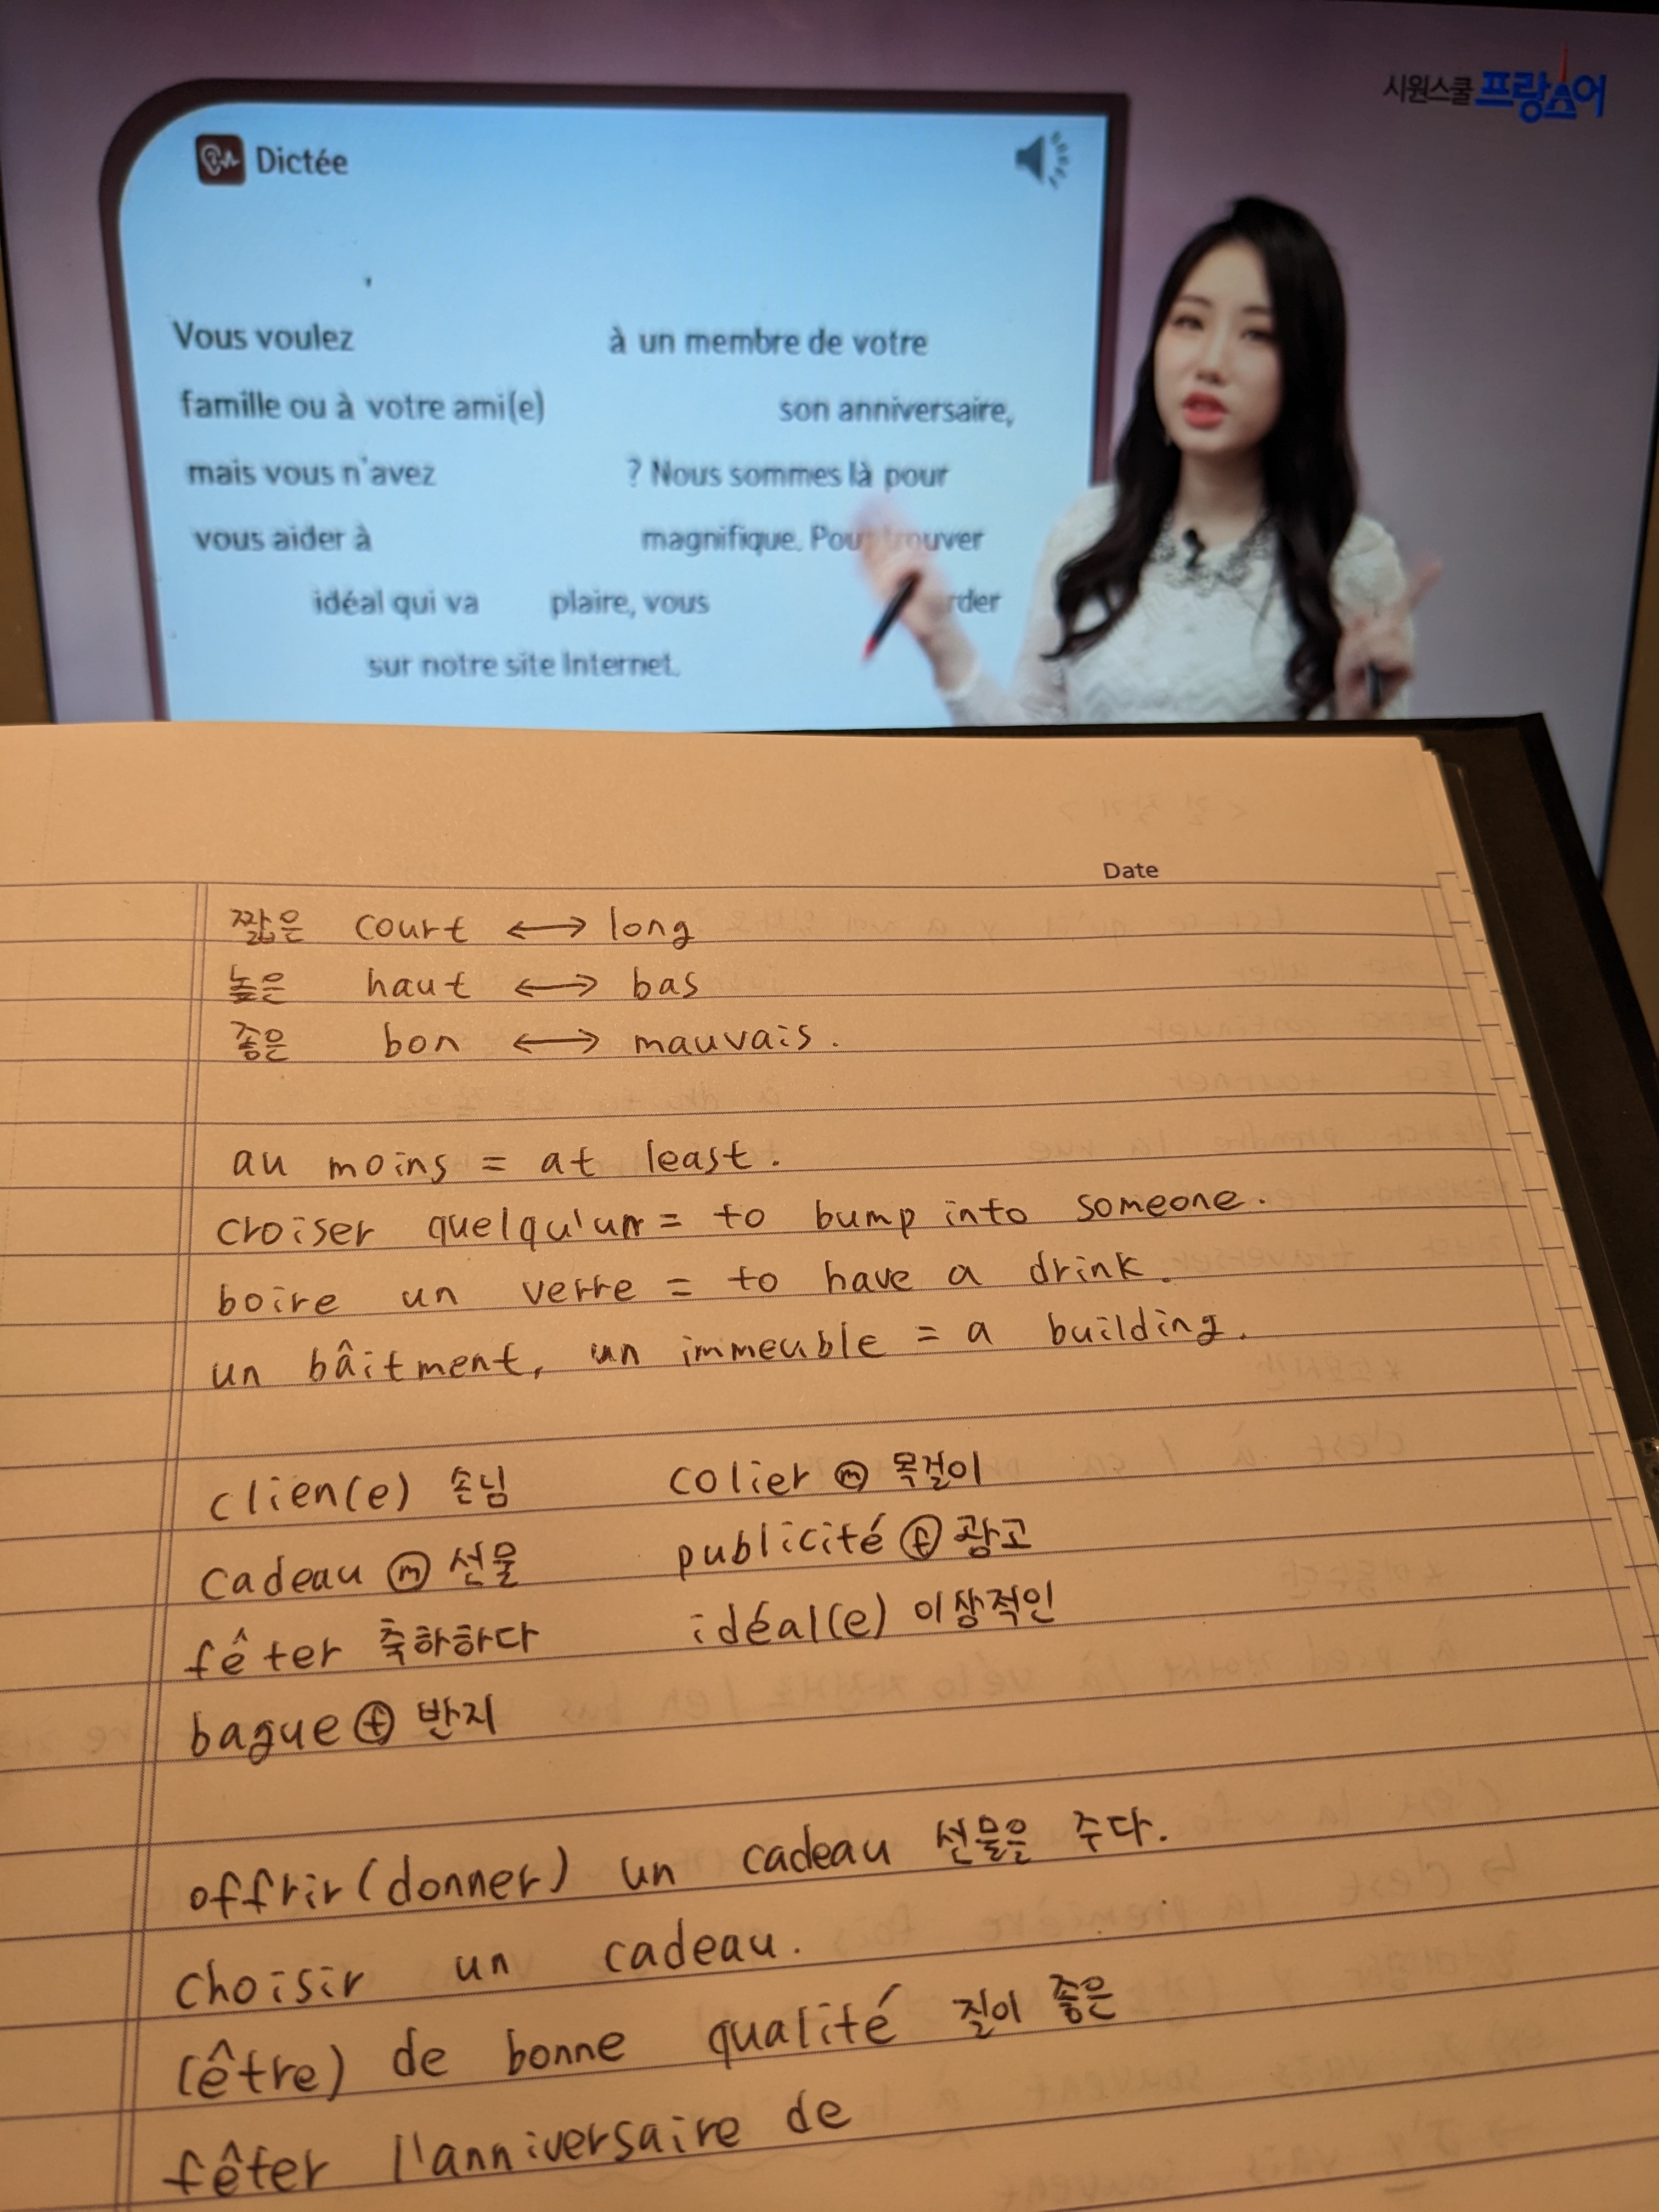 시원스쿨 프랑스어
Dictée
Vous voulez à un membre de votre
famille ou à votre ami(e) son anniversaire,
mais vous n'avez ? Nous sommes là pour
vous aider à magnifique. Pour trouver
idéal qui va plaire, vous rder
sur notre site Internet.
Date
짧은 court ↔ long
높은 haut ↔ bas
좋은 bon ↔ mauvais.
au moins = at least.
croiser quelqu'un = to bump into someone.
boire un verre = to have a drink.
un bâitment, un immeuble = a building.
clien(e) 손님 colier ⓜ 목걸이
cadeau ⓜ 선물 publicité ⓕ 광고
fêter 축하하다 idéal(e) 이상적인
bague ⓕ 반지
offrir(donner) un cadeau 선물은 주다.
choisir un cadeau.
(être) de bonne qualité 질이 좋은
fêter l'anniversaire de